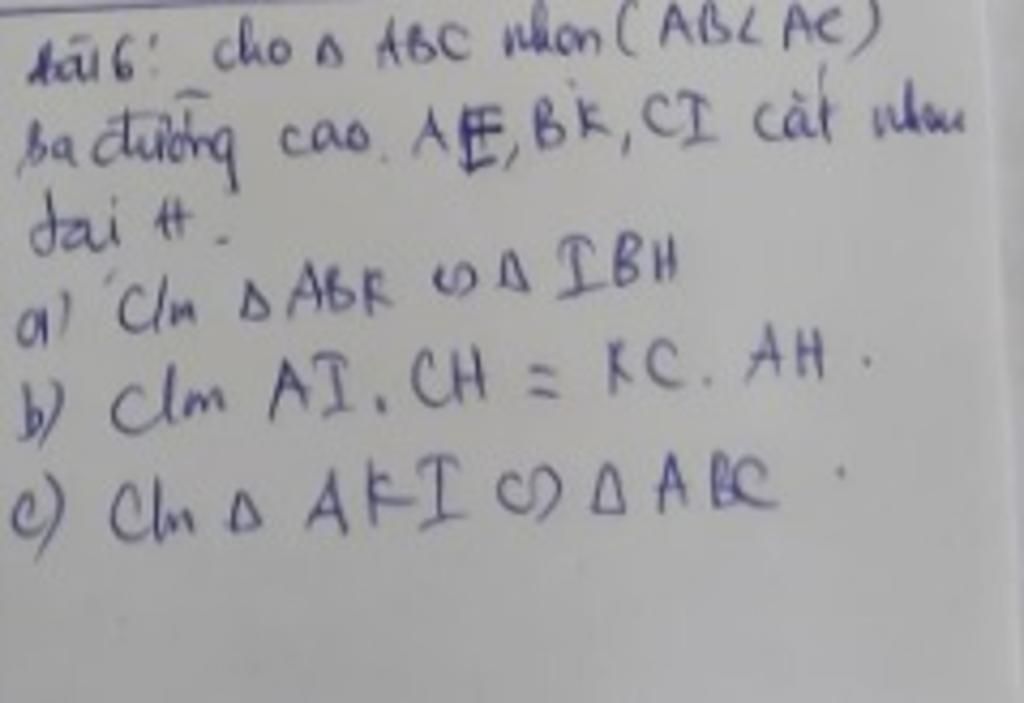 Bài 6: cho Δ ABC nhọn (AB < AC)
Ba đường cao. AE, BK, CI cắt nhau
tại H.
a) C/m Δ ABK ∽ Δ IBH
b) C/m AI. CH = KC. AH.
c) C/m Δ AKI ∽ Δ ABC.